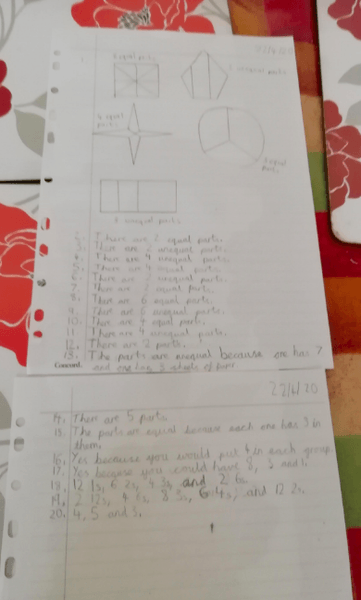 22/6/20
8 equal parts
3 unequal parts
4 equal parts
3 equal parts
3 unequal parts
There are 2 equal parts.
There are 2 unequal parts.
There are 4 unequal parts.
5. There are 4 equal parts.
6. There are unequal parts.
7. There are equal parts.
8. There are 6 equal parts.
9. There are 6 unequal parts.
10. There are 4 equal parts.
11. There are 4 unequal parts.
12. There are 2 parts.
13. The parts are unequal because one has 7
and one has 3 wheels of
Concord
22/6/20
14. There are 5 parts.
15. The parts are equal because each one has 3 in
them.
16. Yes because you would put 4 in each group.
17. Yes because you could have 8, 3 and 1.
18. 12 1s, 6 2s, 4 3s, and 2 6s.
19. 2 12s, 4 6s, 8 3s, 6 4s, and 12 2s.
20. 4, 5 and 3.